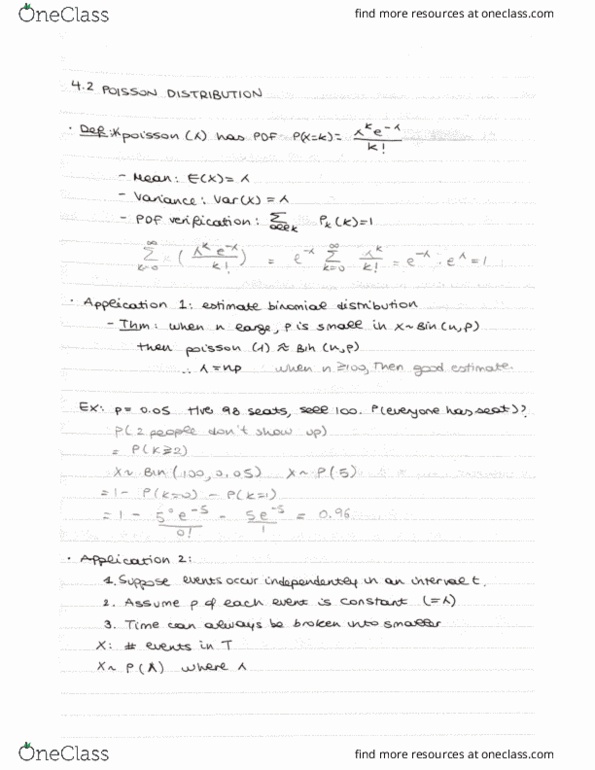 OneClass
find more resources at oneclass.com
4.2 POISSON DISTRIBUTION
• Def: X poisson (λ) has PDF P(X=k) = λ^k e^-λ / k!
- Mean: E(X) = λ
- Variance: Var(X) = λ
- PDF verification: Σ P_k(k)=1
∞ Σ k=0 × (λ^k e^-λ / k!) = e^-λ ∞ Σ k=0 λ^k / k! = e^-λ · e^λ = 1
• Application 1: estimate binomial distribution
- Thm: when n large, p is small in X~Bin(n,p)
then poisson (λ) ≈ Bin (n,p)
∴ λ = np when n ≥100, Then good estimate.
Ex: p= 0.05 98 seats, sell 100. P(everyone has seat)?
P(2 people don't show up)
= P(k≥2)
X~ Bin (100, 0.05) X~ P(5)
= 1 - P(k=0) - P(k=1)
= 1 - 5^0 e^-5 / 0! - 5e^-5 / 1 = 0.96
• Application 2:
1. Suppose events occur independently in an interval t.
2. Assume p of each event is constant (=λ)
3. Time can always be broken into smaller
X: # events in T
X~ P(λ) where λ
OneClass
find more resources at oneclass.com